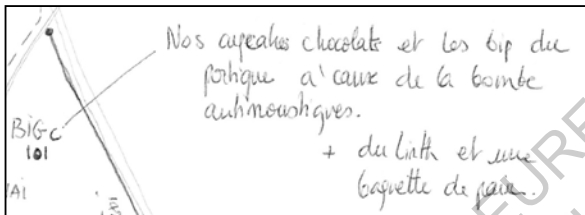 Nos cupcakes chocolats et les bip du
portique a' cause de la bombe
antimoustiques.
BiGc
101
+ du linth et une
baguette de pain.
AI
URE